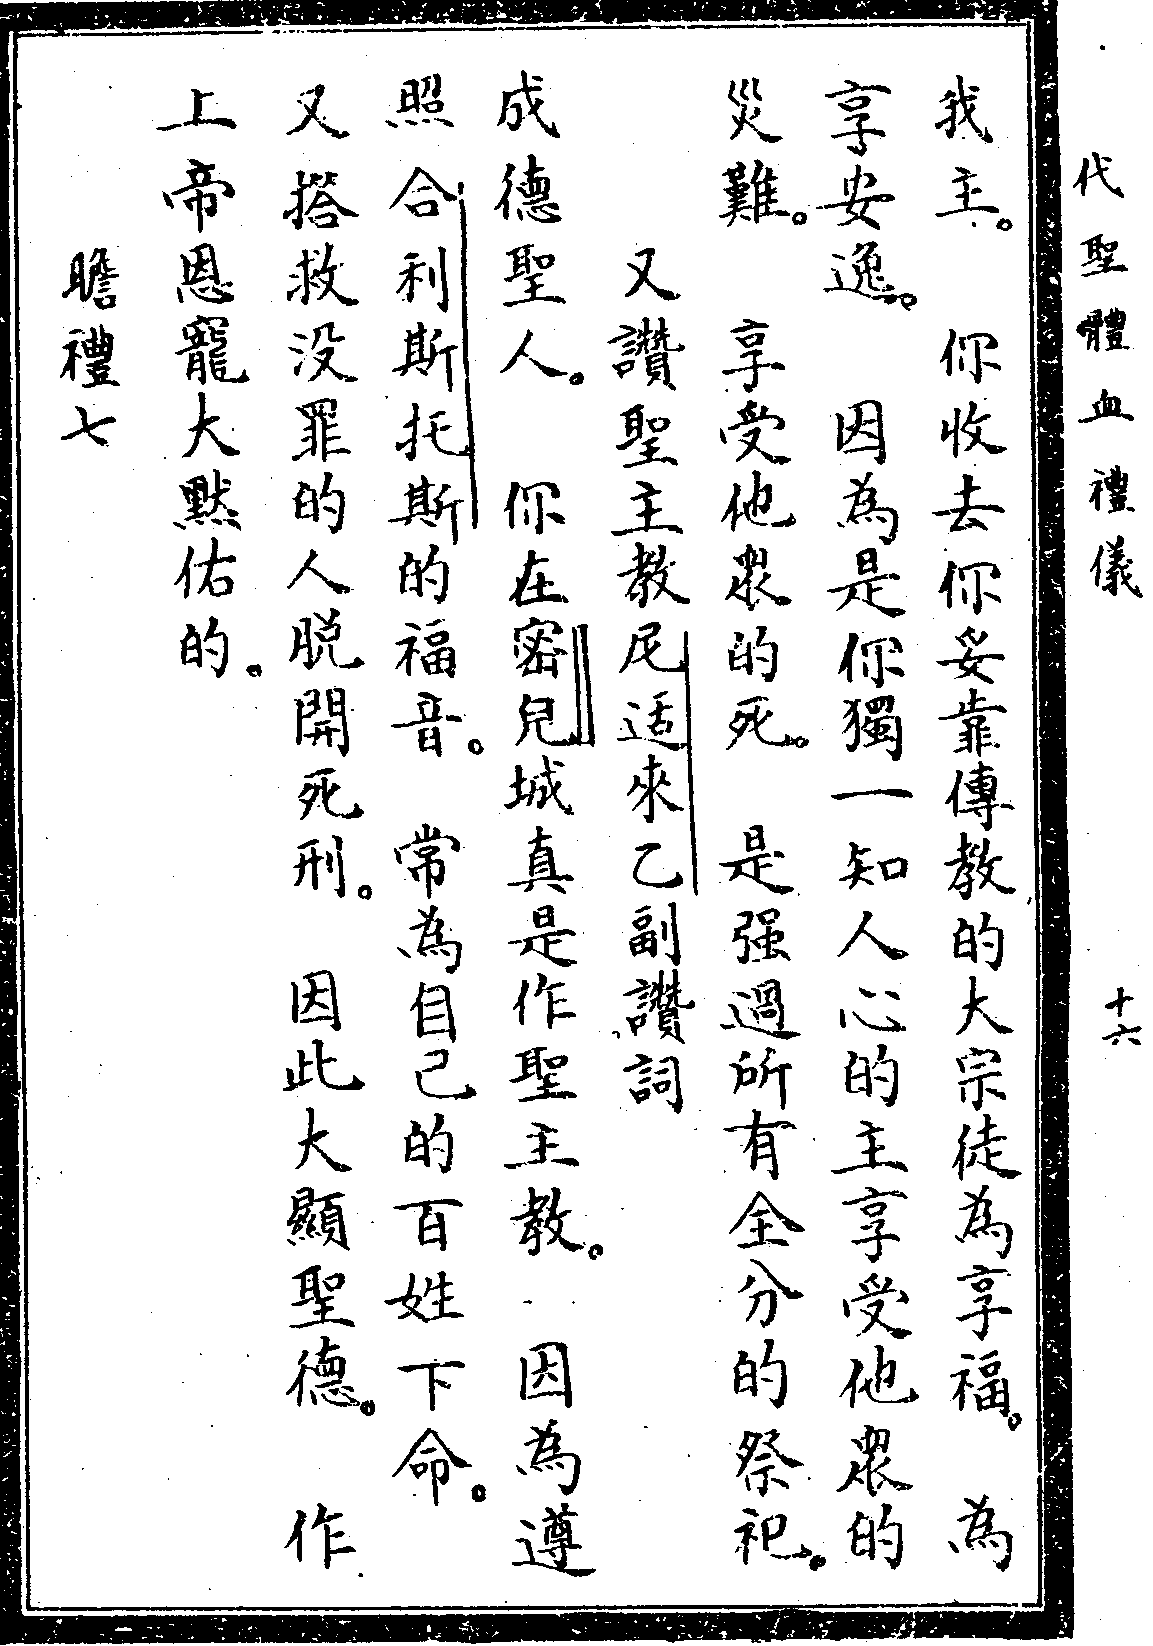 代聖體血禮儀 十六
我主。 你收去你妥靠傳教的大宗徒為享福。 為
享安逸。 因為是你獨一知人心的主享受他眾的
災難。 享受他眾的死。 是强過所有全分的祭祀。
又讚聖主教尼适來乙副讚詞
成德聖人。 你在密兒城真是作聖主教。 因為遵
照合利斯托斯的福音。 常為自己的百姓下命。
又搭救没罪的人脱開死刑。 因此大顯聖德。 作
上帝恩寵大黙佑的。
瞻禮七